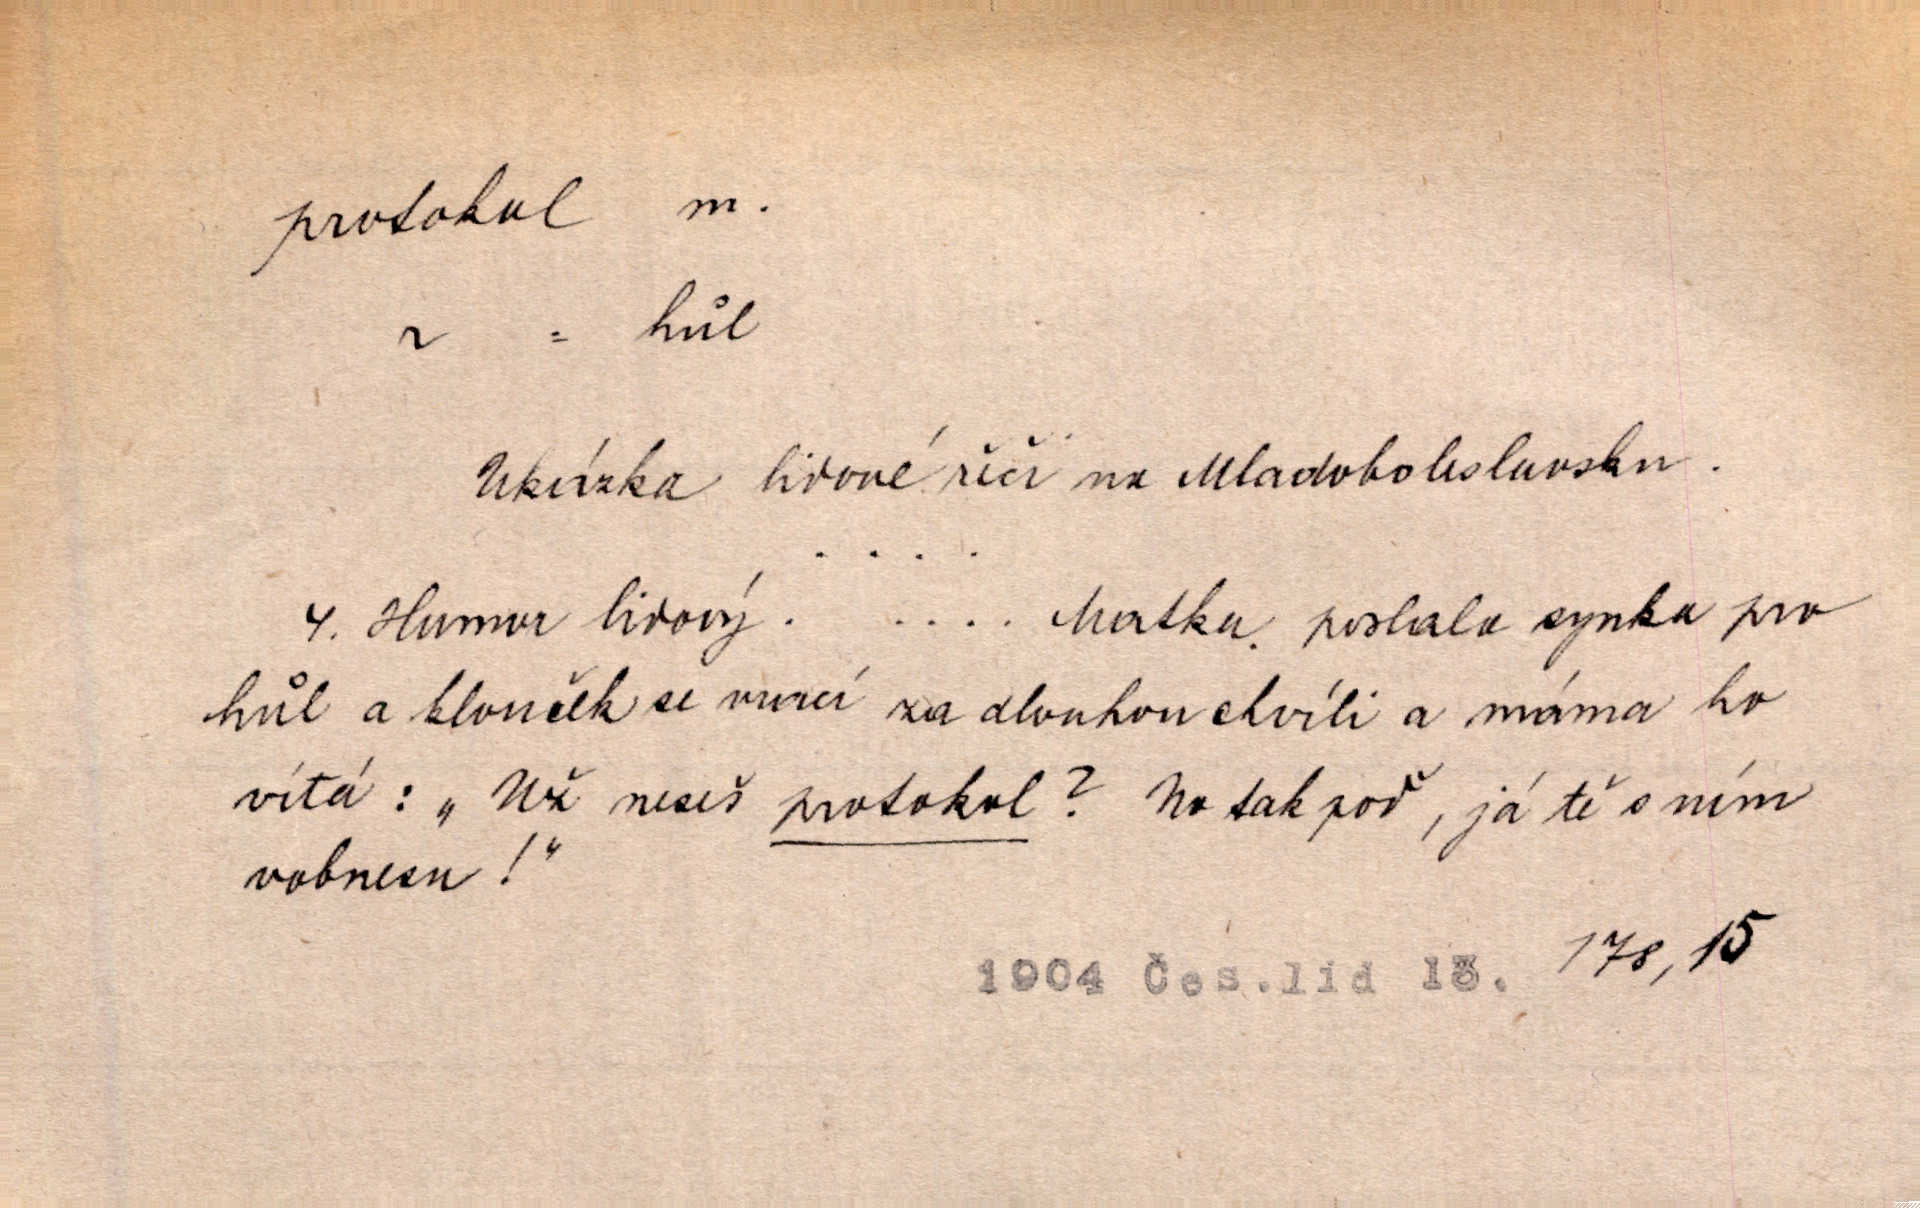 protokol m.
~ = hůl
Ukázka lidové řeči na Mladoboleslavsku.
. . . .
4. Humor lidový. . . . . Matka poslala synka pro
hůl a klouček se vrací za dlouhou chvíli a máma ho
vítá: „Už neseš protokol? No tak poď, já tě s ním
vobnesu!"
1904 Čes.lid 13. 178, 15